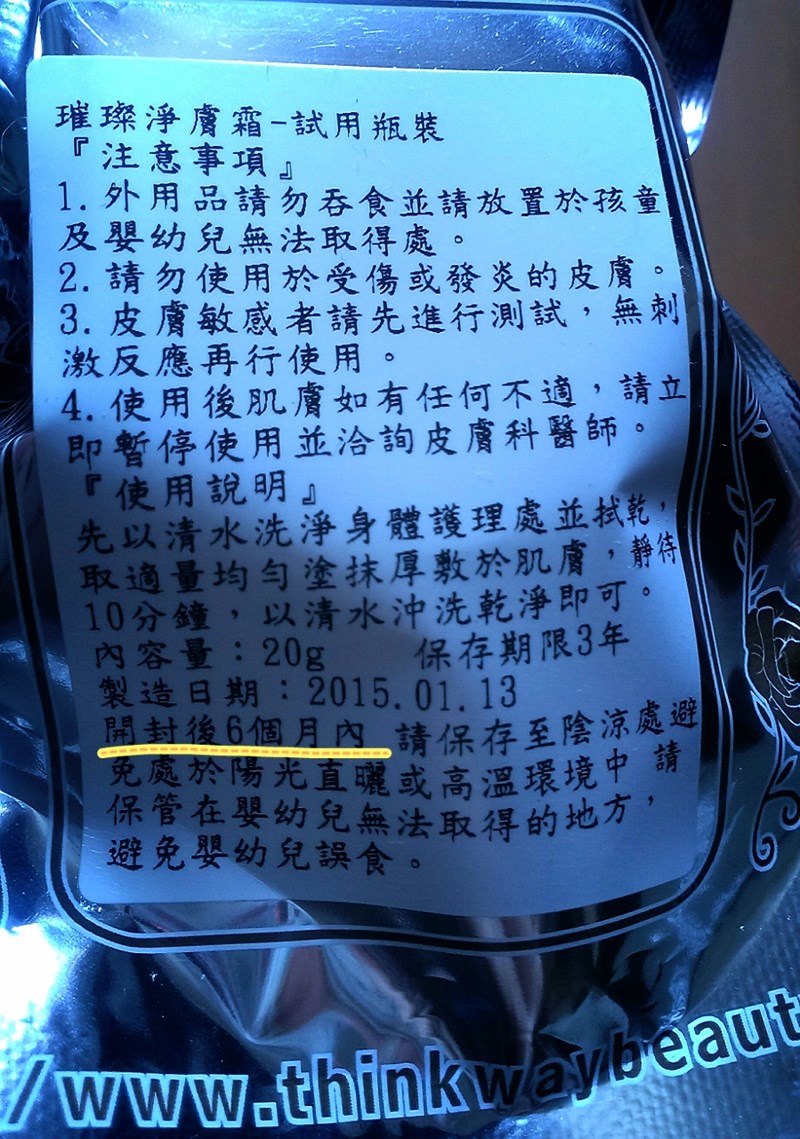 璀璨淨膚霜-試用瓶裝
『注意事項』
1.外用品請勿吞食並請放置於孩童
及嬰幼兒無法取得處。
2.請勿使用於受傷或發炎的皮膚。
3.皮膚敏感者請先進行測試，無刺
激反應再行使用。
4.使用後肌膚如有任何不適，請立
即暫停使用並洽詢皮膚科醫師。
『使用說明』
先以清水洗淨身體護理處並拭乾，
取適量均勻塗抹厚敷於肌膚，靜待
10分鐘，以清水沖洗乾淨即可。
內容量：20g 保存期限3年
製造日期：2015.01.13
開封後6個月內 請保存至陰涼處避
免處於陽光直曬或高溫環境中 請
保管在嬰幼兒無法取得的地方，
避免嬰幼兒誤食。
/www.thinkwaybeaut